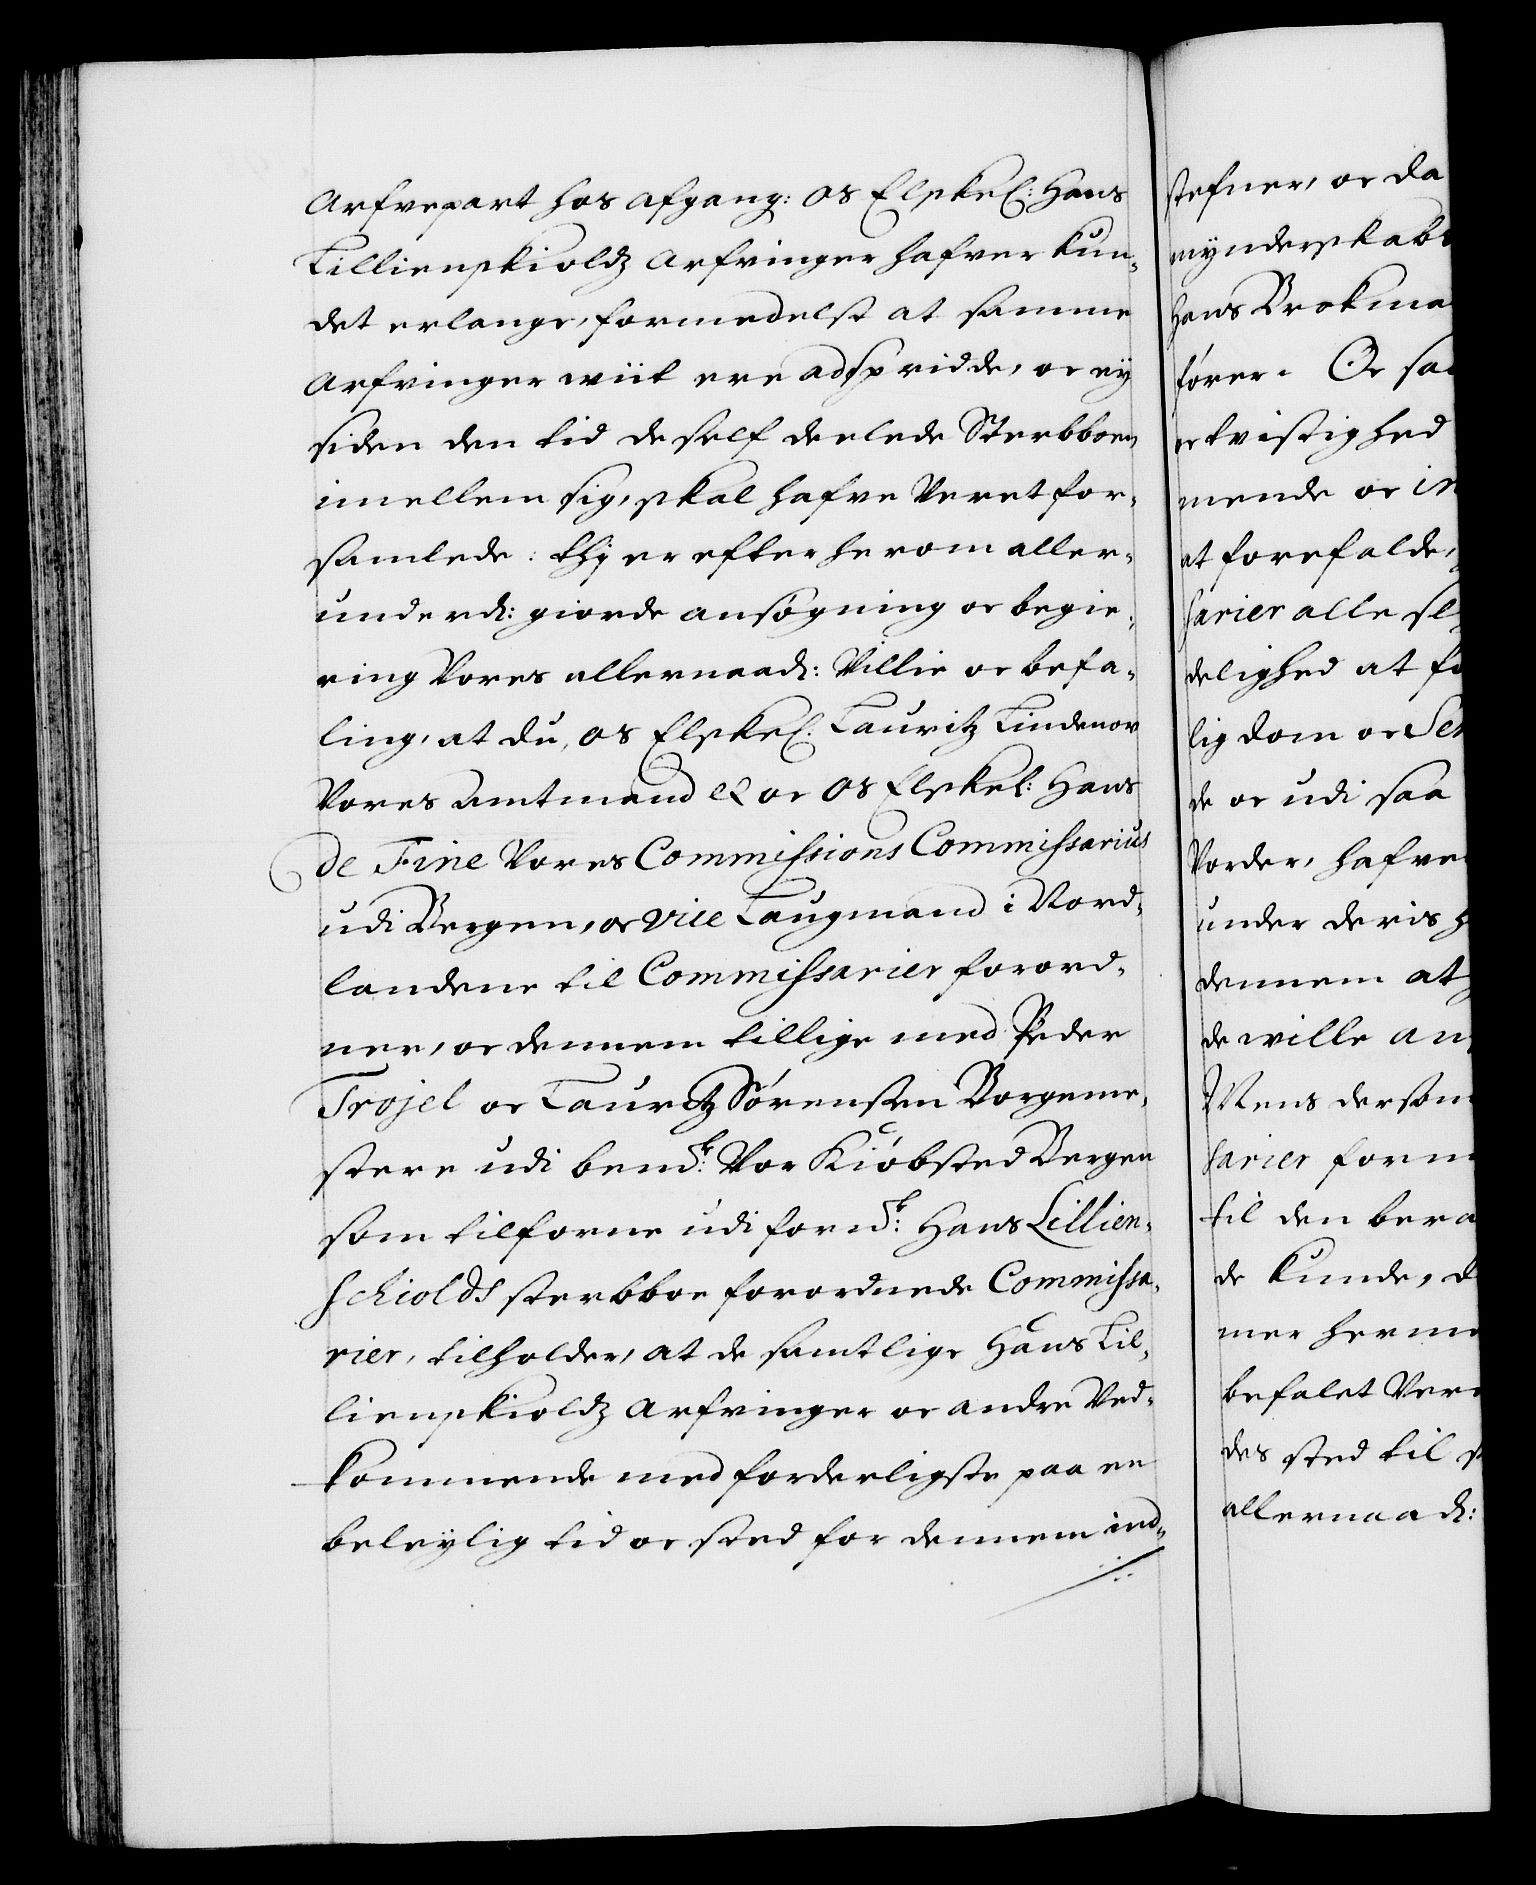 Arfvepart hos afgang: Os Elskel: Hans
Lillienskioldz Arfvinger hafver kun-
det erlange, formedelst at samme
Arfvinger wiit ere adspridde, oc ey
siden den tid de self deelede Sterbboen
imellem sig, skal hafve Veret for-
samlede: thj er efter herom aller-
underd: giorde ansøgning oc begie-
ring Vores allernaad: Villie oc befa-
ling, at du, Os Elskel. Lauritz Lindenov
Vores Amtmand & oc Os Elskel: Hans
de Fine Vores Commissions Commissarius
udi Bergen, oc Vice Laugmand i Nord-
landene til Commissarier forord-
ner, oc dennem tillige med Peder
Trojel oc Lauritz Sørensen Borgeme-
stere udi bemd.te: Vor Kiøbsted Bergen
som tilforne udi formd.te: Hans Lillien-
schiolds sterbboe forordnede Commissa-
rier, tilholder, at de samtlige Hans Lil-
lienskioldz Arfvinger oc andre Ved-
kommende med forderligste paa en
beleylig tid oc sted for dennem ind-
stefner, oc da
mynderskabs
Hans Brokma
fører. Oc saa
oc tvistighed
mende oc in
at forefalde,
sarier alle sl
delighed at fo
lig dom oc Sen
de oc udi saa
Vorder, hafve
under deris h
dennem at
de wille an
Mens dersom
sarier form
til den bera
de kunde, d
mer herme
befalet Vere
des sted til s
allernaad: